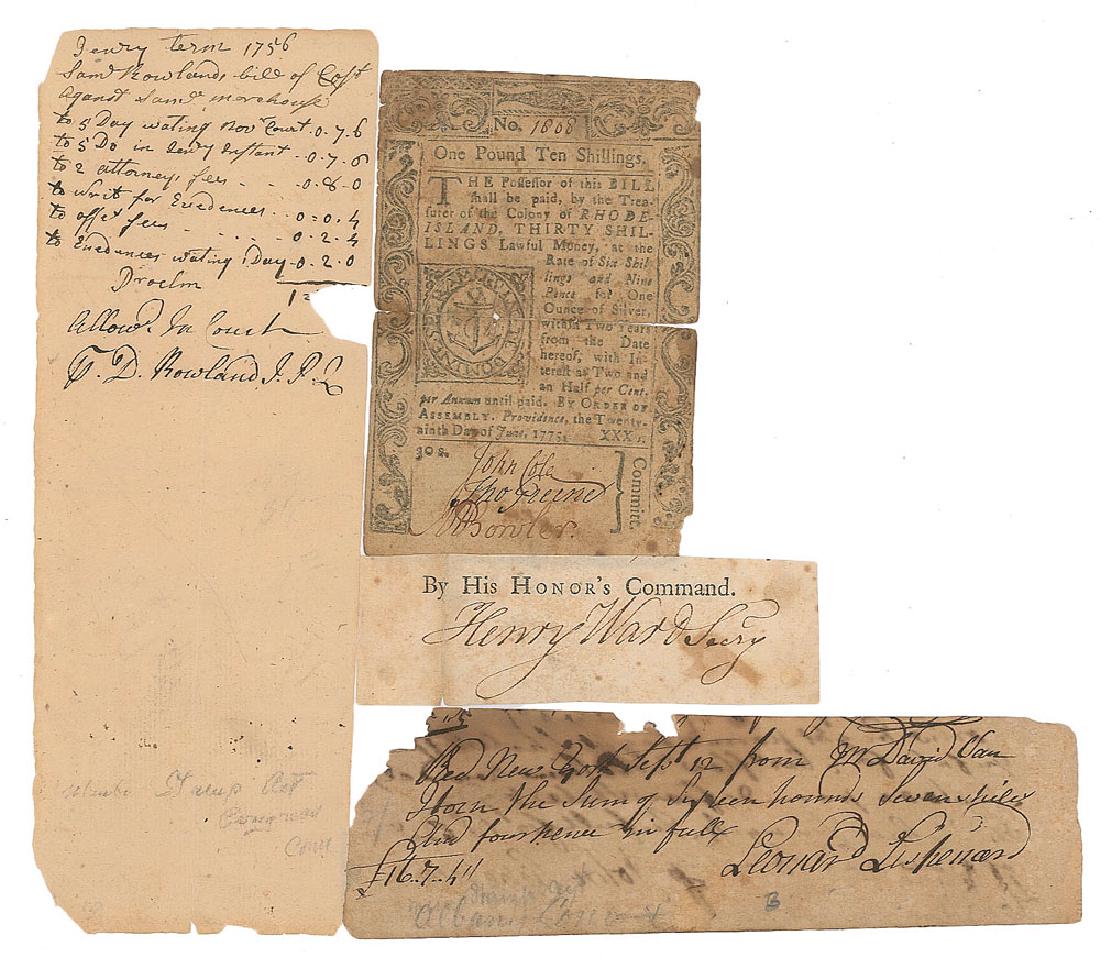 Jenry term 1756
Saml Rowlands bill of Cost
Against Saml morehouse
to 5 Day wating Novr Court . 0 . 7 . 6
to 5 Do in Jenry Instant . . 0 . 7 . 6
to 2 attorneys fees . . . 0 . 8 . 0
to writ for Evedences . . 0 = 0 . 4
to offet fees . . . . . . 0 . 2 . 4
to Evedances wating 1 Day . 0 . 2 . 0
1 =
Allowd. In Court
D. Rowland J. P. Q
Stamp Act
Congress
Conn
No. 1808
One Pound Ten Shillings.
THE Possessor of this BILL
shall be paid, by the Trea-
surer of the Colony of RHODE-
ISLAND, THIRTY SHIL-
LINGS Lawful Money, at the
Rate of Six Shil-
lings and Nine
Pence for One
Ounce of Silver,
within Two Years
from the Date
hereof, with In-
terest at Two and
an Half per Cent.
per Annum until paid. By ORDER OF
ASSEMBLY. Providence, the Twenty-
ninth Day of June, 1775. XXX s.
30 s.
John Cole
Tho Greene
M Bowler.
} Committ.
By His HONOR's Command.
Henry Ward Secry
Recd New York Sept 12 from Mr David Van
Horn the Sum of Sixteen pounds Seven shills
And four pence in full
£16.7.4
Leonard Lispenard
Stamp Act
Albany
B